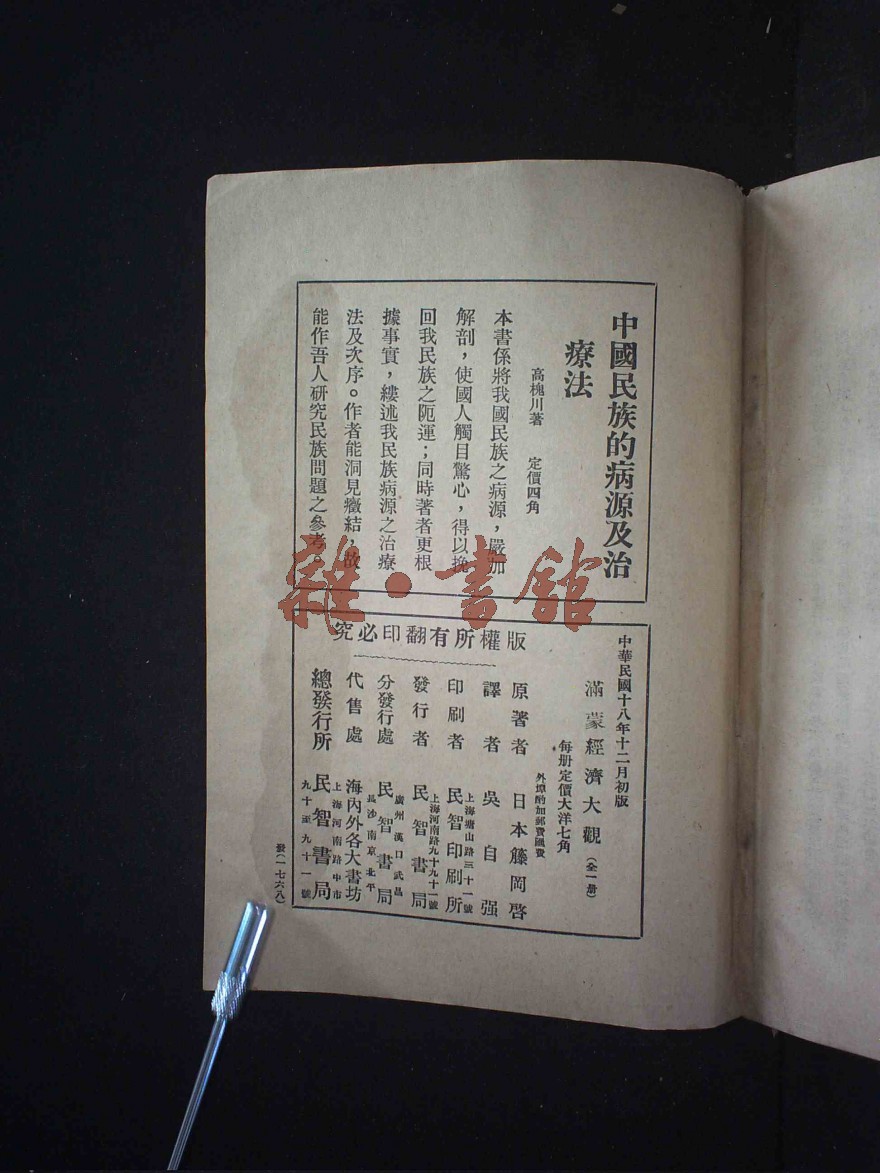 中國民族的病源及治
療法
高槐川著　定價四角
本書係將我國民族之病源，嚴加
解剖，使國人觸目驚心，得以挽
回我民族之阨運；同時著者更根
據事實，縷述我民族病源之治療
法及次序。作者能洞見癥結，故
能作吾人硏究民族問題之參考。
雜·書館
中華民國十八年十二月初版
滿蒙經濟大觀（全一册）
每册定價大洋七角
外埠酌加郵費匯費
版權所有翻印必究
原著者　日本籐岡啓
譯者　吳自强
上海塘山路三十一號
印刷者　民智印刷所
上海河南路九十九十一號
發行者　民智書局
廣州漢口武昌
分發行處　民智書局
長沙南京北平
代售處　海內外各大書坊
上海河南路中市
總發行所　民智書局
九十至九十一號
發（一七六八）